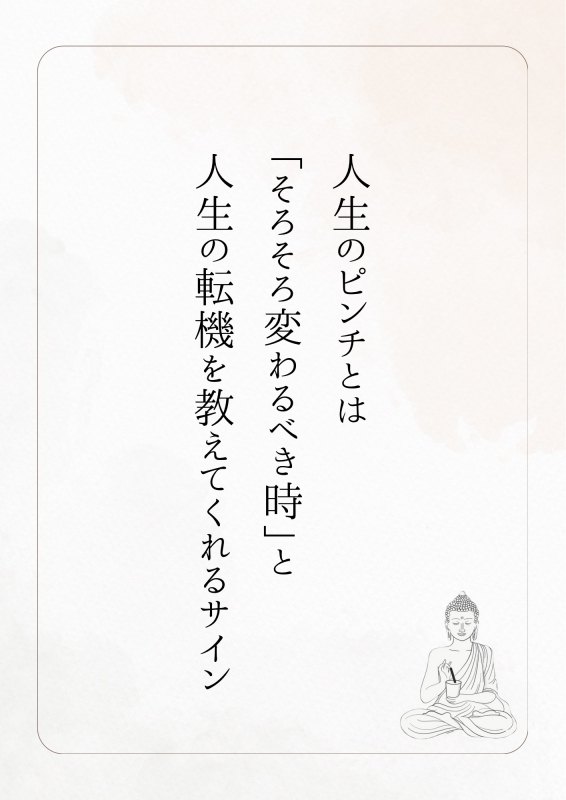 人生のピンチとは
「そろそろ変わるべき時」と
人生の転機を教えてくれるサイン